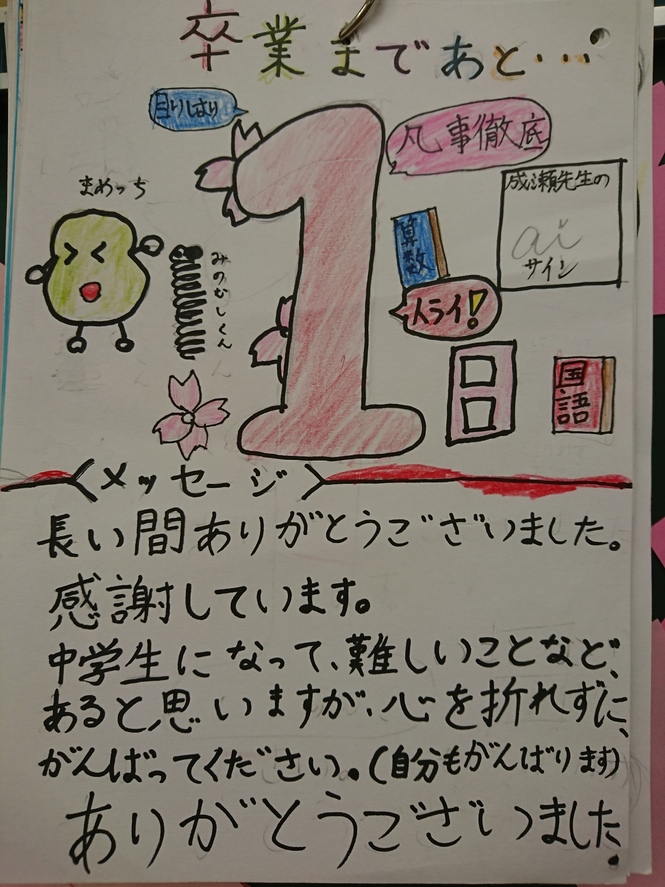 卒業まであと…
目りはり
凡事徹底
まめっち
成瀬先生の
ai
サイン
算数
みのむしくん
トライ!
1日
国語
メッセージ
長い間ありがとうございました。
感謝しています。
中学生になって、難しいことなど、
あると思いますが、心を折れずに、
がんばってください。(自分もがんばります)
ありがとうございました